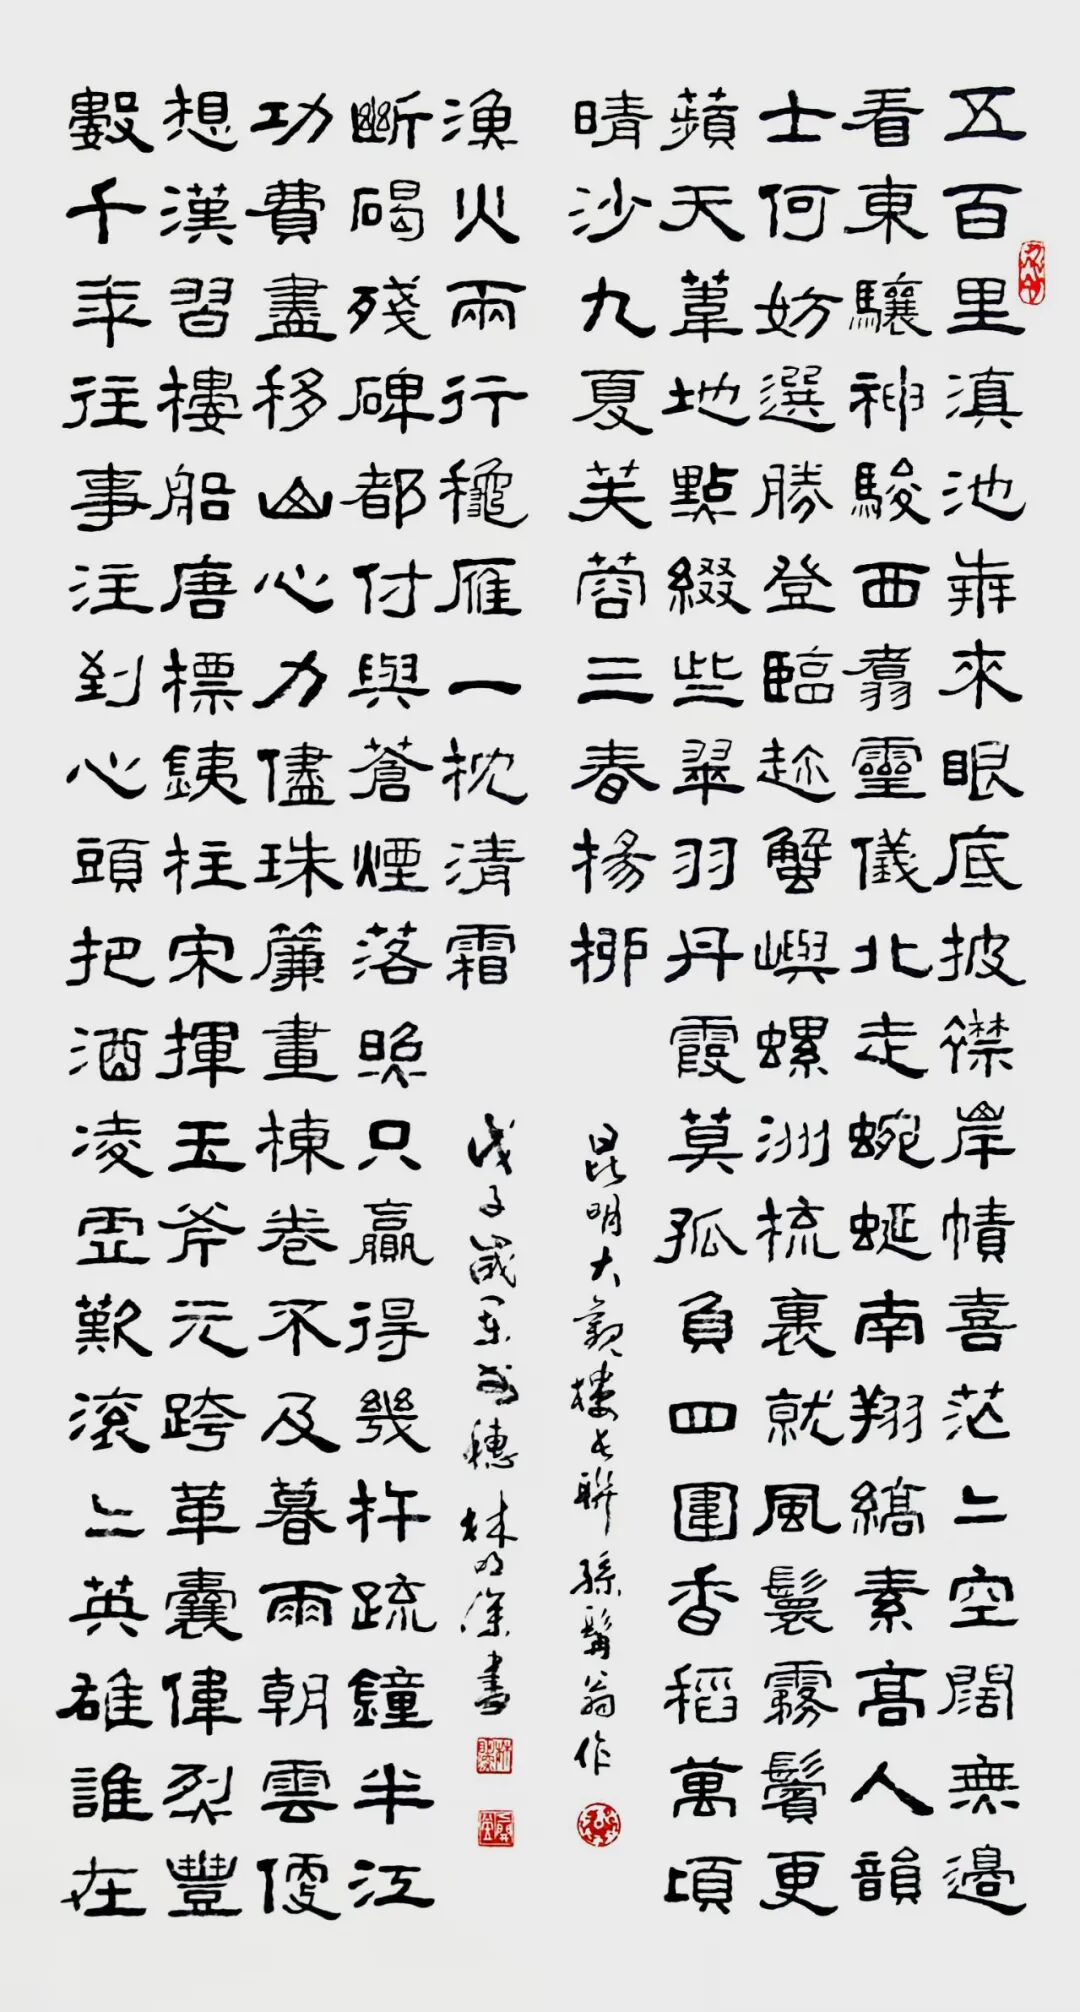 五百里滇池奔來眼底披襟岸幘喜茫〻空闊無邊
看東驤神駿西翥靈儀北走蜿蜒南翔縞素高人韻
士何妨選勝登臨趁蟹嶼螺洲梳裹就風鬟霧鬢更
蘋天葦地點綴些翠羽丹霞莫孤負四圍香稻萬頃
晴沙九夏芙蓉三春楊柳
昆明大觀樓長聯 孫髯翁作
數千年往事注到心頭把酒凌虛歎滾〻英雄誰在
想漢習樓船唐標銕柱宋揮玉斧元跨革囊偉烈豐
功費盡移山心力儘珠簾畫棟卷不及暮雨朝雲便
斷碣殘碑都付與蒼煙落照只贏得幾杵疏鐘半江
漁火兩行穐雁一枕清霜
戊子歲於穗 林深書